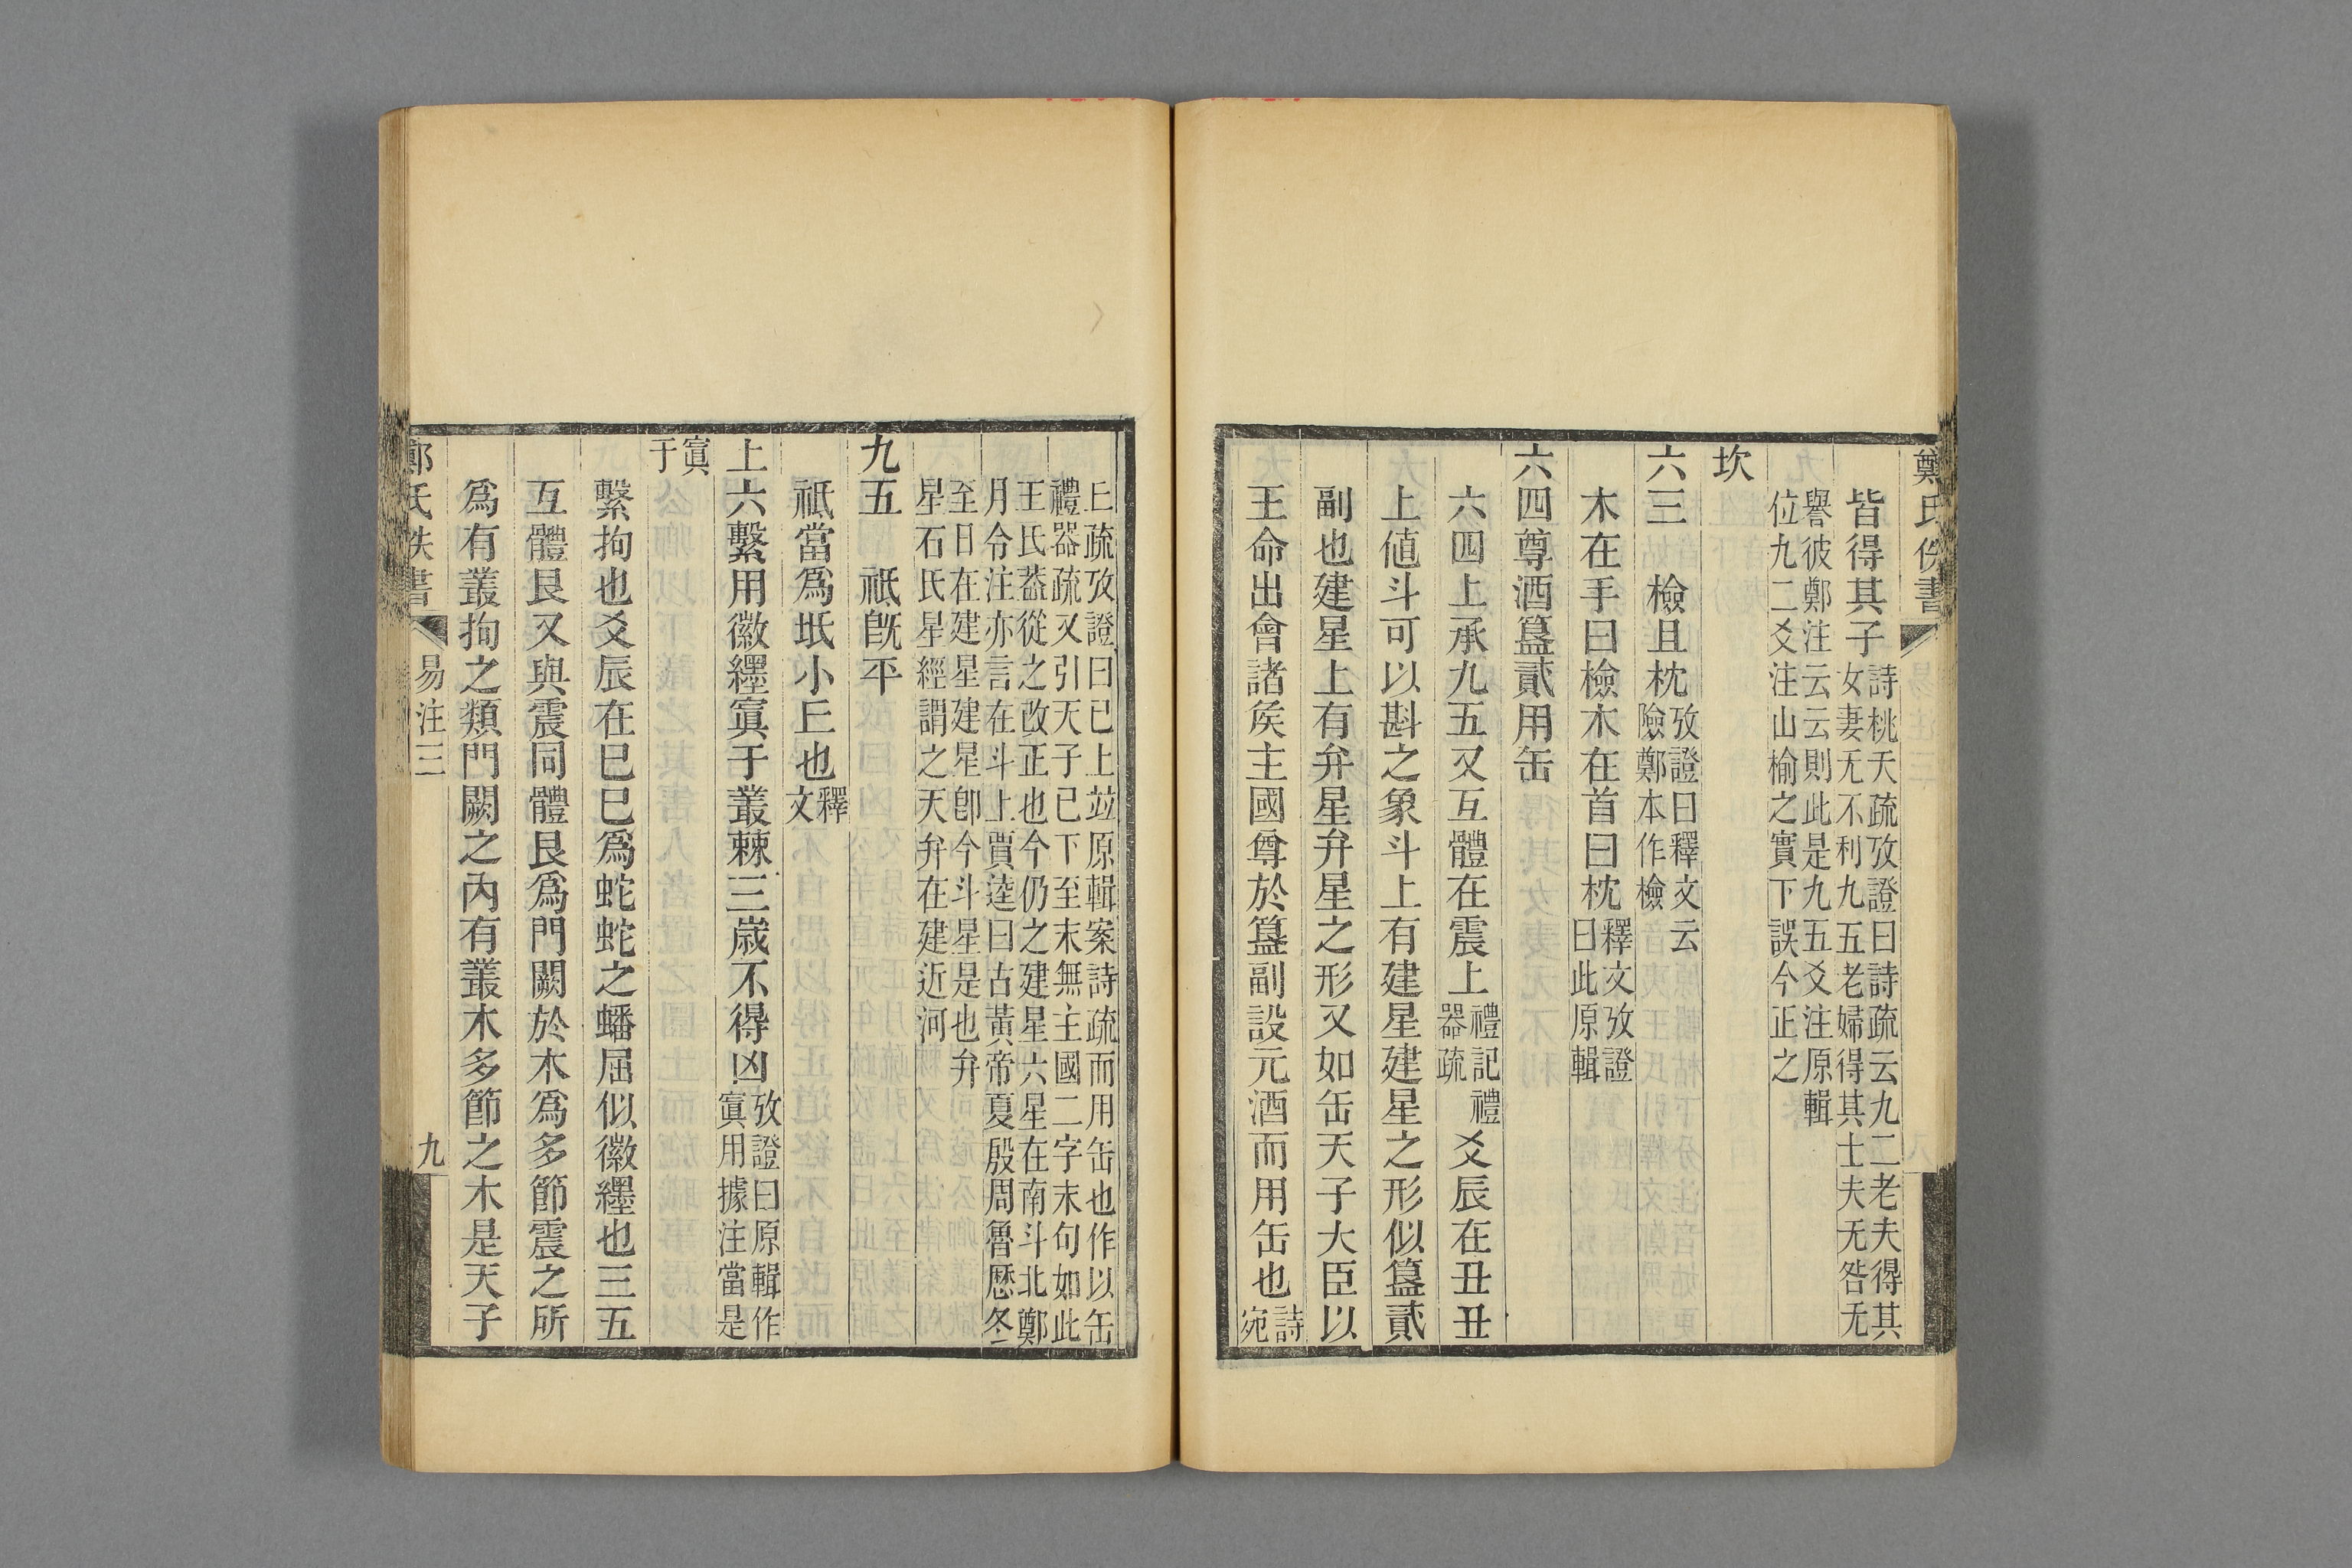 鄭氏佚書
皆得其子
詩桃夭疏攷證曰詩疏云九二老夫得其
女妻无不利九五老婦得其士夫无咎无
譽彼鄭注云云則此是九五爻注原輯
位九二爻注山榆之實下誤今正之
坎
六三　檢且枕
攷證曰釋文云
險鄭本作檢
木在手曰檢木在首曰枕
釋文攷證
曰此原輯
六四尊酒簋貳用缶
六四上承九五又互體在震上
禮記
器疏
禮
爻辰在丑丑
上値斗可以斟之象斗上有建星建星之形似簋貳
副也建星上有弁星弁星之形又如缶天子大臣以
王命出會諸矦主國尊於簋副設元酒而用缶也
詩
宛
上疏攷證曰已上竝原輯案詩疏而用缶也作以缶
禮器疏又引天子已下至末無主國二字末句如此
王氏葢從之改正也今仍之建星六星在南斗北鄭
月令注亦言在斗上賈逵曰古黃帝夏殷周魯厯冬
至日在建星建星卽今斗星是也弁
星石氏星經謂之天弁在建近河
九五　祗旣平
祗當爲坻小𠀉也
釋
文
上六繫用徽纆寘于叢棘三歲不得凶
攷證曰原輯作
寘用據注當是
寘
于
繫拘也爻辰在巳巳爲蛇蛇之蟠屈似徽纆也三五
互體艮又與震同體艮爲門闕於木爲多節震之所
爲有叢拘之類門闕之內有叢木多節之木是天子
鄭氏佚書
易注三
九